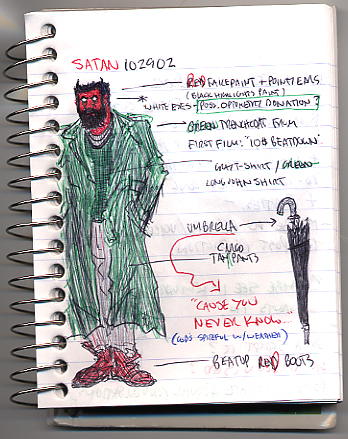 SATAN 102902
RED FACEPAINT + POINTY EARS
(BLACK HIGHLIGHTS PAINT)
* WHITE EYES - POSS. OPTOMETRY DONATION?
GREEN TRENCHCOAT FROM
FIRST FILM: "10$ BEATDOWN"
GRAY T-SHIRT / GREEN
LONG JOHN SHIRT
UMBRELLA
CARGO
TAN PANTS
"CAUSE YOU
NEVER KNOW...
(GOD'S SPITEFUL W/ WEATHER)
BEATUP RED BOOTS